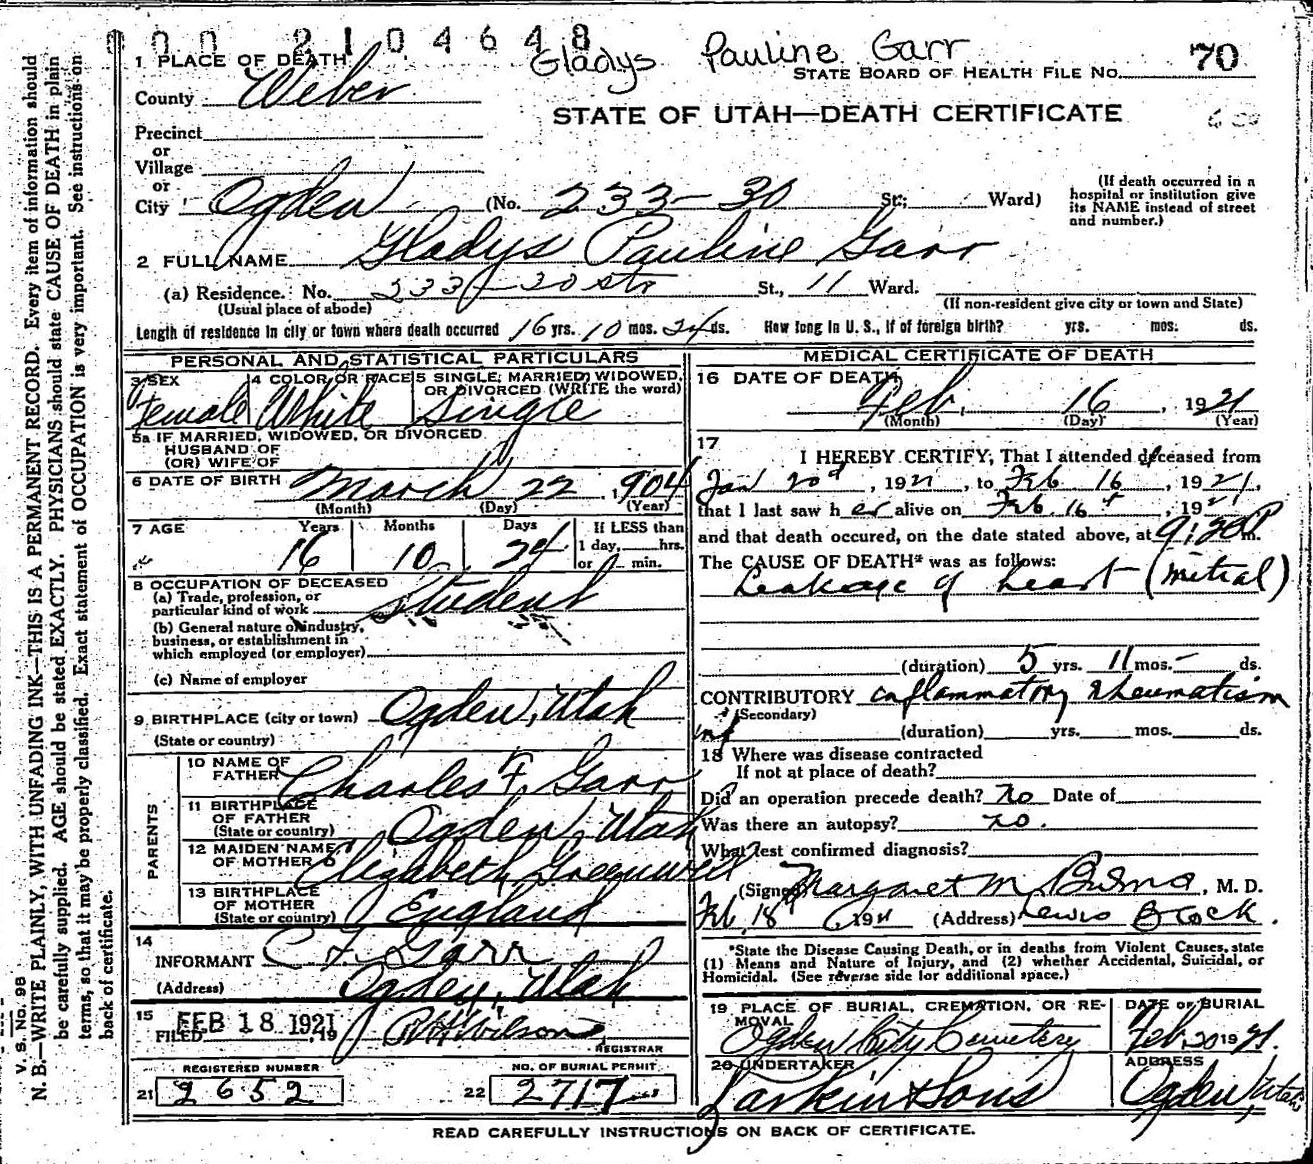 0 0 0 2 1 0 4 6 4 8
Gladys Pauline Garr
70
1 PLACE OF DEATH
STATE BOARD OF HEALTH FILE NO.
County Weber
STATE OF UTAH—DEATH CERTIFICATE
Precinct
or
Village
or
City Ogden (No. 233-30 St; Ward)
(If death occurred in a hospital or institution give its NAME instead of street and number.)
2 FULL NAME Gladys Pauline Garr
(a) Residence. No. 233-30 str St., 11 Ward.
(Usual place of abode) (If non-resident give city or town and State)
Length of residence in city or town where death occurred 16 yrs. 10 mos. 24 ds. How long in U. S., if of foreign birth? yrs. mos. ds.
PERSONAL AND STATISTICAL PARTICULARS
3 SEX Female
4 COLOR OR RACE White
5 SINGLE, MARRIED, WIDOWED, OR DIVORCED (WRITE the word) Single
5a IF MARRIED, WIDOWED, OR DIVORCED
HUSBAND OF
(OR) WIFE OF
6 DATE OF BIRTH March 22, 1904
(Month) (Day) (Year)
7 AGE Years Months Days If LESS than
16 10 24 1 day, hrs.
or min.
8 OCCUPATION OF DECEASED
(a) Trade, profession, or
particular kind of work Student
(b) General nature of industry,
business, or establishment in
which employed (or employer)
(c) Name of employer
9 BIRTHPLACE (city or town) Ogden, Utah
(State or country)
PARENTS
10 NAME OF
FATHER Charles F. Garr
11 BIRTHPLACE
OF FATHER Ogden, Utah
(State or country)
12 MAIDEN NAME
OF MOTHER Elizabeth Greenwell
13 BIRTHPLACE
OF MOTHER England
(State or country)
14
INFORMANT C. F. Garr
(Address) Ogden, Utah
15 FEB 18 1921
FILED , 19
REGISTRAR
REGISTERED NUMBER NO. OF BURIAL PERMIT
21 2652 22 2717
MEDICAL CERTIFICATE OF DEATH
16 DATE OF DEATH
Feb, 16, 1921
(Month) (Day) (Year)
17
I HEREBY CERTIFY, That I attended deceased from
Jan 20, 1921, to Feb 16, 1921,
that I last saw her alive on Feb. 16, 1921
and that death occured, on the date stated above, at 9:20 P m.
The CAUSE OF DEATH* was as follows:
Leakage of heart (mitral)
(duration) 5 yrs. 11 mos. - ds.
CONTRIBUTORY inflammatory rheumatism
(Secondary)
(duration) yrs. mos. ds.
18 Where was disease contracted
If not at place of death?
Did an operation precede death? no Date of
Was there an autopsy? no.
What test confirmed diagnosis?
(Signed) Margaret M. , M. D.
Feb. 18 1921 (Address) Lewis Block.
*State the Disease Causing Death, or in deaths from Violent Causes, state
(1) Means and Nature of Injury, and (2) whether Accidental, Suicidal, or
Homicidal. (See reverse side for additional space.)
19 PLACE OF BURIAL, CREMATION, OR RE-
MOVAL
Ogden City Cemetery
DATE OF BURIAL
Feb. 20 1921.
20 UNDERTAKER
Larkin & Sons
ADDRESS
Ogden, Utah
READ CAREFULLY INSTRUCTIONS ON BACK OF CERTIFICATE.
V. S. No. 98
N. B.—WRITE PLAINLY, WITH UNFADING INK—THIS IS A PERMANENT RECORD. Every item of information should
be carefully supplied. AGE should be stated EXACTLY. PHYSICIANS should state CAUSE OF DEATH in plain
terms, so that it may be properly classified. Exact statement of OCCUPATION is very important. See instructions on
back of certificate.